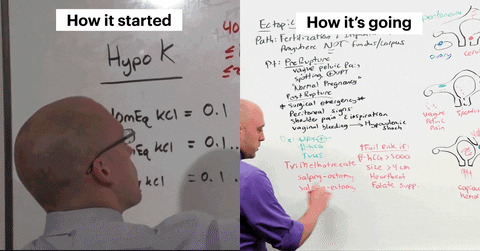 How it started
Hypo K
40
≤
≤
10mEq KCl = 0.1
= 0.1..
KCl = 0.1..
How it's going
Ectopic
Path: Fertilization
Anywhere NOT Fundus/corpus
Pt: PreRupture
vague Pelvic Pain
spotting ⊕UPT
"Normal Pregnancy"
Post Rupture
* Surgical emergency *
Peritoneal signs
shoulder pain c inspiration
vaginal bleeding → Hypovolemic
Shock
β-hCG
TVUS
Tx: Methotrexate
salping-ostomy
salping-ectomy
↑Fail Risk if:
β-hCG > 5000
Size > 4 cm
Heartbeat
Folate Supp.
peritoneum
ovary
cervix
Vague
Pelvic
Pain